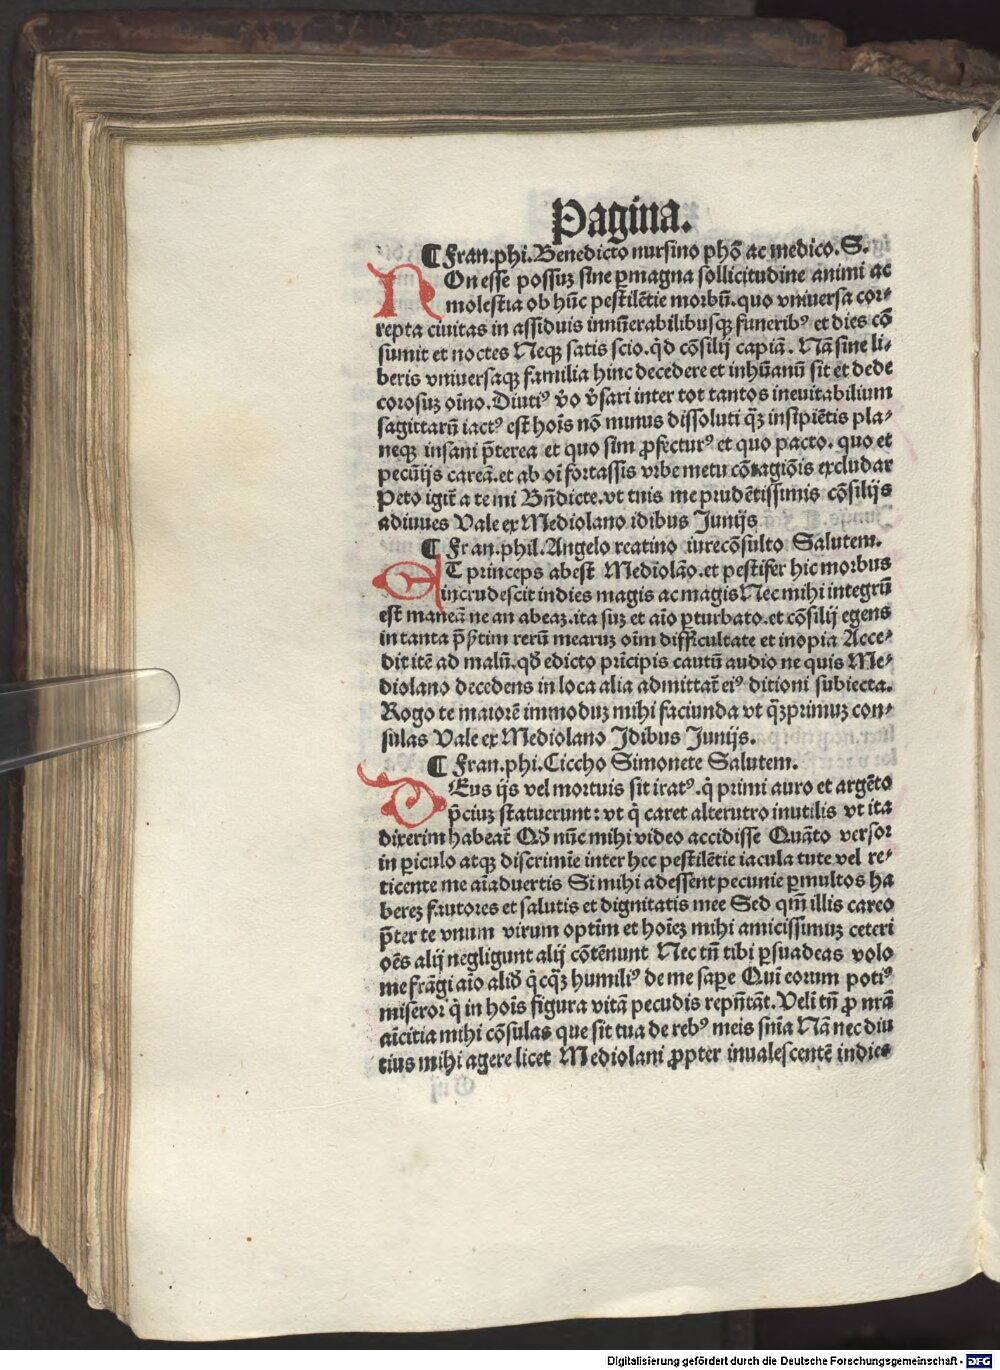 Pagina.
¶ Fran.phi.Benedicto nursino phõ ac medico.S.
NOn esse possuȝ sine ꝑmagna sollicitudine animi ac
molestia ob hũc pestilẽtie morbũ.quo vniuersa cor⸗
repta ciuitas in assiduis innũerabilibusqȝ funeribꝰ et dies cõ
sumit et noctes Neqȝ satis scio.qd̃ cõsilij capiã. Nã sine li⸗
beris vniuersaqȝ familia hinc decedere et inhũanũ sit et dede
corosuȝ oĩno.Diutiꝰ ṽo ṽsari inter tot tantos ineuitabilium
sagittarũ iactꝰ est hoĩs nõ minus dissoluti q̃ȝ insipiẽtis pla⸗
neqȝ insani p̃terea et quo sim ꝓfecturꝰ et quo pacto. quo et
pecũijs careã.et ab oĩ fortassis vrbe metu cõtagiõis excludar
Peto igit̃ a te mi Bñdicte.vt tuis me prudẽtissimis cõsilijs
adiuues Vale ex Mediolano idibus Junijs
¶ Fran.phil.Angelo reatino iurecõsulto Salutem.
ET princeps abest Mediolão.et pestifer hic morbus
incrudescit indies magis ac magis Nec mihi integrũ
est maneã ne an abeaȝ.ita suȝ et aĩo ꝑturbato.et cõsilij egens
in tanta p̃sẽtim rerũ mearuȝ oĩm difficultate et inopia Acce⸗
dit itẽ ad malũ.qd̃ edicto prĩcipis cautũ audio ne quis Me⸗
diolano decedens in loca alia admittat̃ eiꝰ ditioni subiecta.
Rogo te maiorẽ immoduȝ mihi faciunda vt q̃ȝprimuȝ con⸗
sulas Vale ex Mediolano Jdibus Junijs.
¶ Fran.phi.Ciccho Simonete Salutem.
DEus ijs vel mortuis sit iratꝰ.q̇ primi auro et argẽto
p̃ciuȝ statuerunt: vt q̇ caret alterutro inutilis vt ita
dixerim habeat̃ Qd̃ nũc mihi video accidisse Quãto versor
in ꝑiculo atqȝ discrimĩe inter hec pestilẽtie iacula tute vel re⸗
ticente me aĩaduertis Si mihi adessent pecunie ꝑmultos ha
bereȝ fautores et salutis et dignitatis mee Sed qm̃ illis careo
p̃ter te vnum virum optim et hoĩeȝ mihi amicissimuȝ ceteri
oẽs alij negligunt alij cõtẽnunt Nec tñ tibi ꝑsuadeas volo
me frãgi aĩo aliđ q̇cq̃ȝ humiliꝰ de me sapere Quĩ eorum potiꝰ
miseror q̇ in hoĩs figura vitã pecudis repñtãt.Veli tñ ꝓ nrã
aĩcitia mihi cõsulas que sit tua de rebꝰ meis sñia Nã nec diu
tius mihi agere licet Mediolani ꝓpter inualescentẽ indies
Digitalisierung gefördert durch die Deutsche Forschungsgemeinschaft - DFG